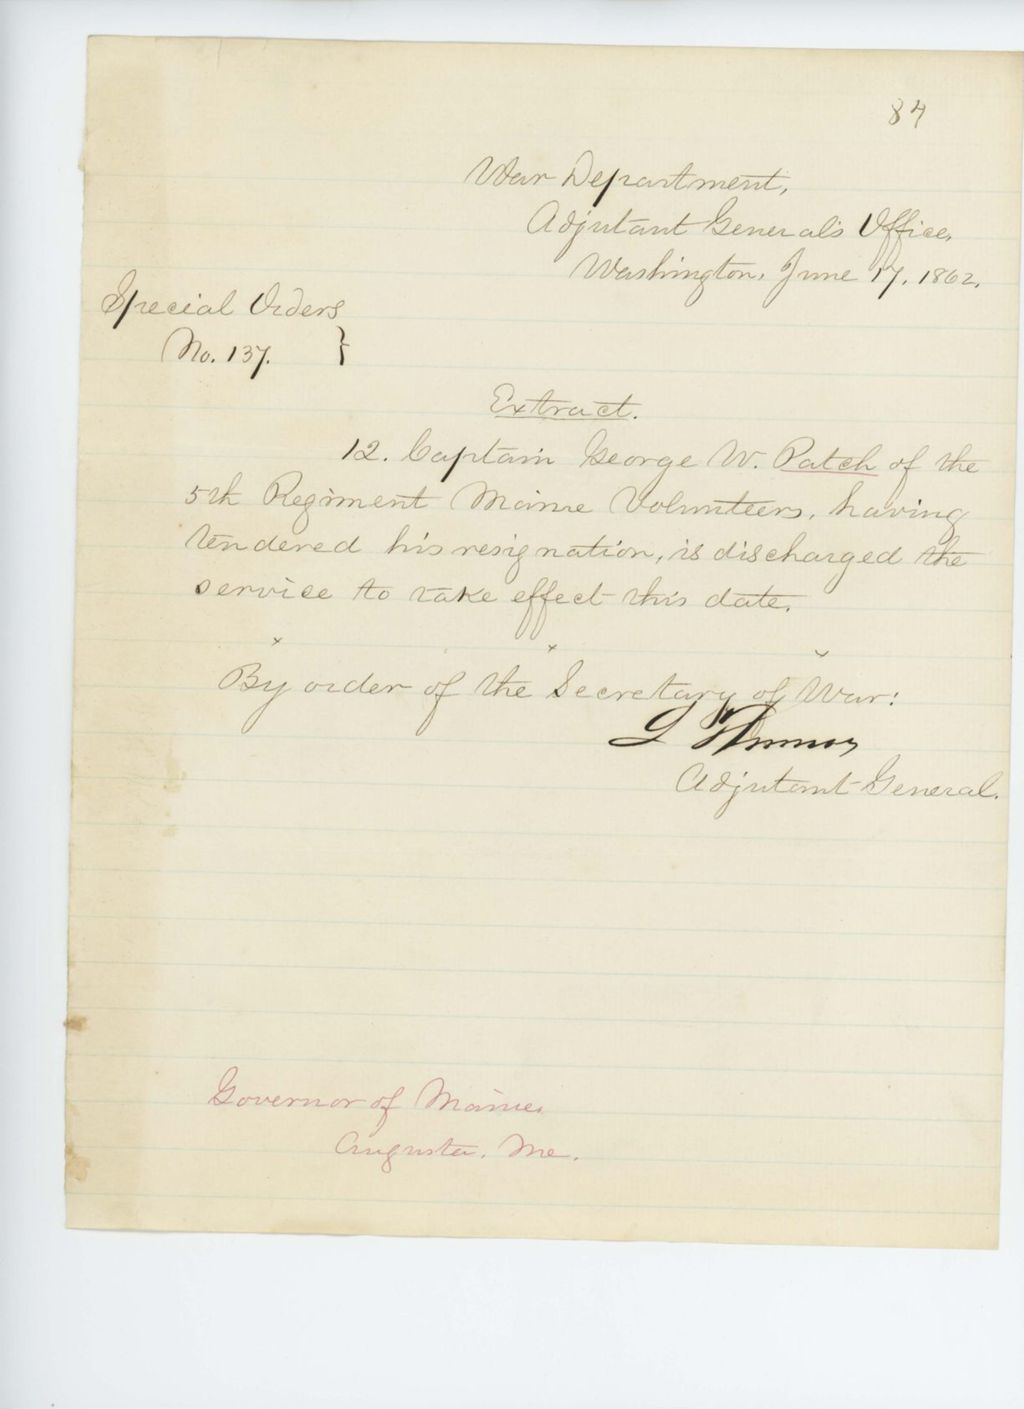 84
War Department,
Adjutant General's Office,
Washington, June 17, 1862.
Special Orders
No. 137. }
Extract.
12. Captain George W. Patch of the
5th Regiment Maine Volunteers, having
tendered his resignation, is discharged the
service to take effect this date.
x x x
By order of the Secretary of War:
L Thomas
Adjutant General.
Governor of Maine,
Augusta, Me.